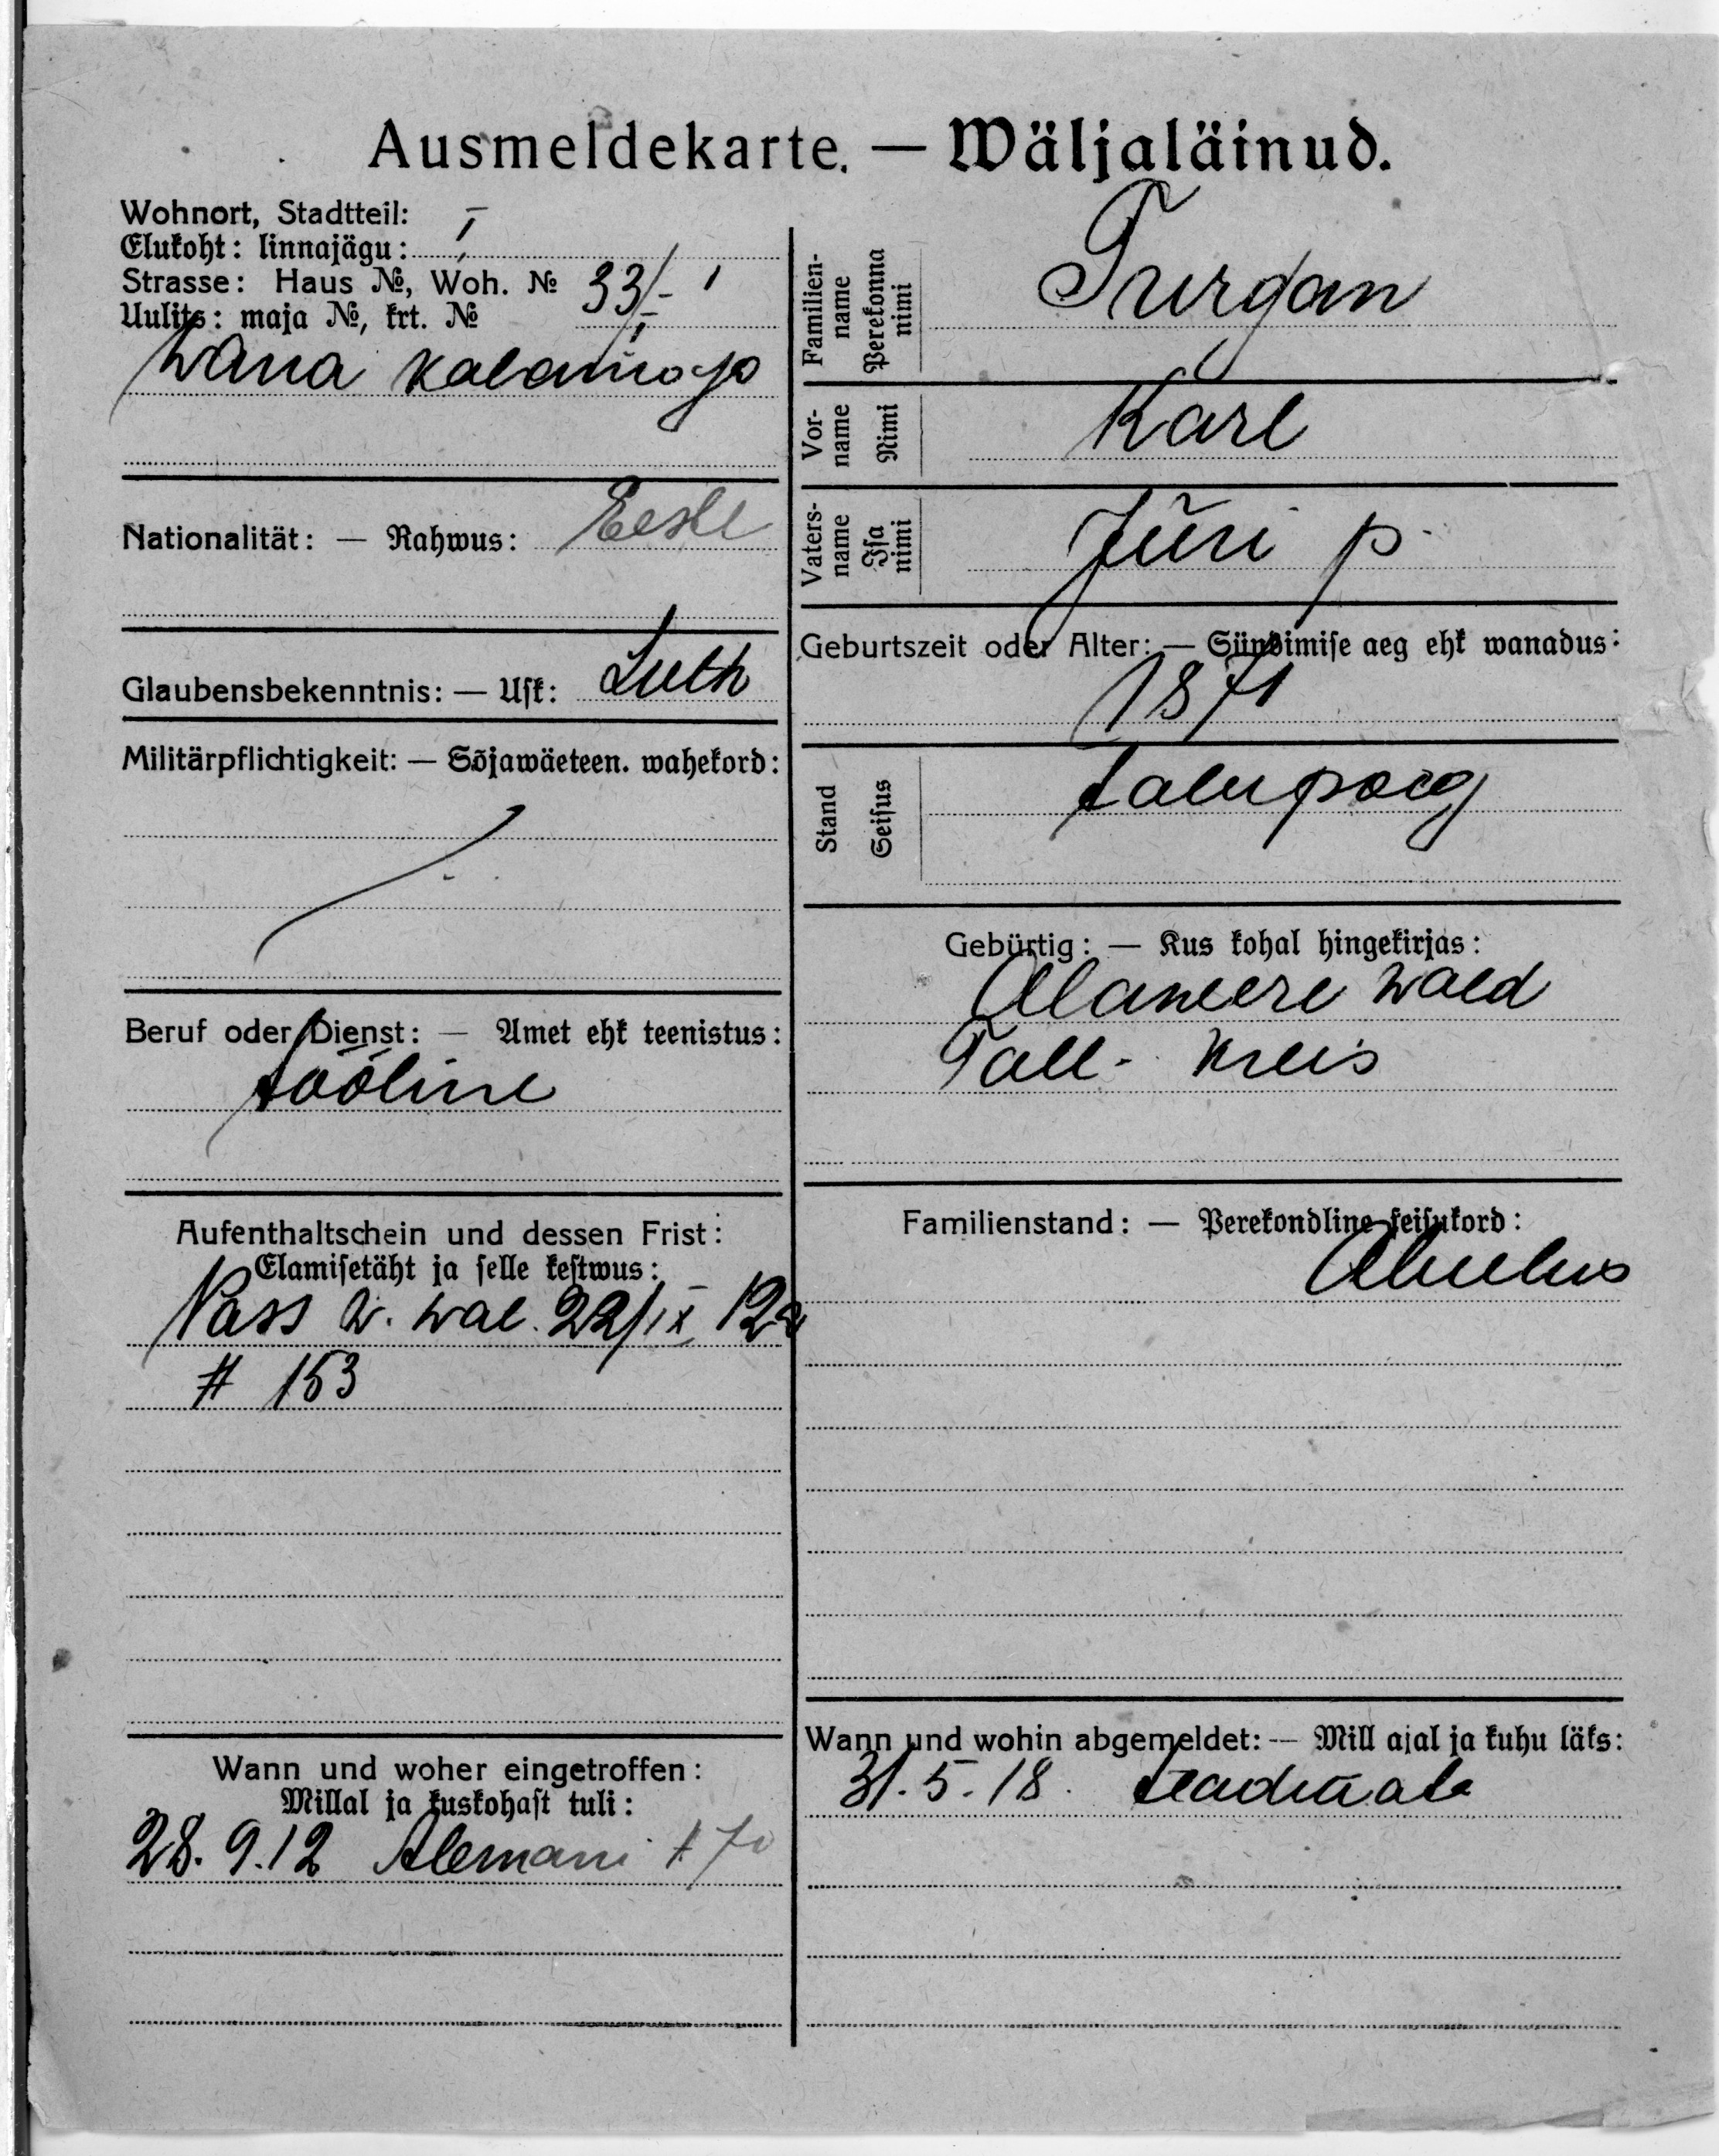 Ausmeldekarte. — Wäljaläinud.
Wohnort, Stadtteil: I
Elukoht: linnajägu:
Strasse: Haus №, Woh. № 33/I-1
Uulits: maja №, krt. №
Wana Kalamaja
Nationalität: — Rahwus: Eesti
Glaubensbekenntnis: — Usk: Luth
Militärpflichtigkeit: — Sõjawäeteen. wahekord:
Beruf oder Dienst: — Amet ehk teenistus:
tööline
Aufenthaltschein und dessen Frist:
Elamisetäht ja selle kestwus:
Pass w. wal. 22/IX 12a
# 153
Wann und woher eingetroffen:
Millal ja kuskohast tuli:
28. 9. 12
Familien-
name
Perekonna
nimi
Turgan
Vor-
name
Nimi
Karl
Vaters-
name
Isa
nimi
Jüri p.
Geburtszeit oder Alter: — Sündimise aeg ehk wanadus:
1871
Stand
Seisus
talupoeg
Gebürtig: — Kus kohal hingekirjas:
Alawere wald
Tall. Kreis
Familienstand: — Perekondline seisukord:
Abielus
Wann und wohin abgemeldet: — Mill ajal ja kuhu läks:
31. 5. 18. teadmata